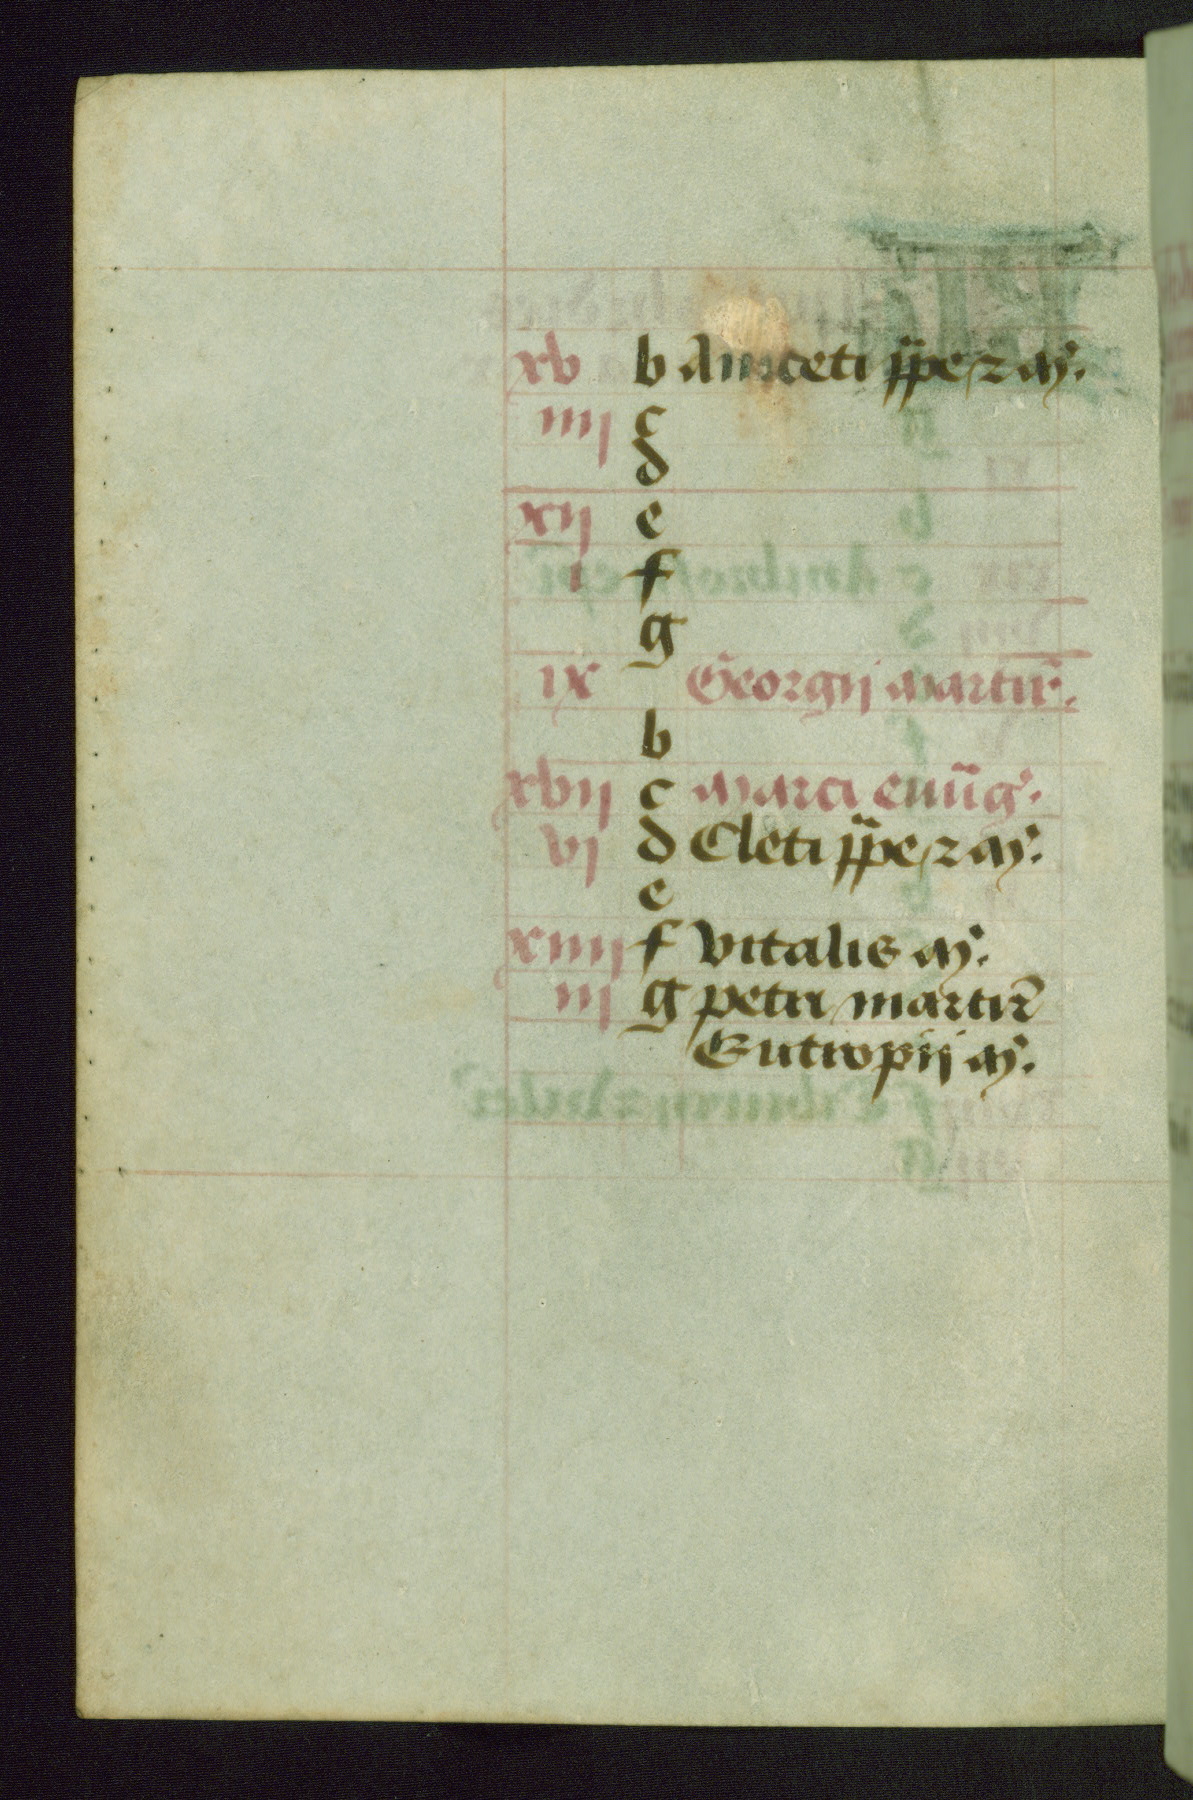 xv b Aniceti ppe z m̃.
iiij c
d
xij e
i f
g
ix Georgij martir̃.
b
xvij c Marci euũg.
vj d Cleti ppe z m̃.
e
xiiij f Vitalis m̃.
iij g petri martir̃
Eutropij m̃.